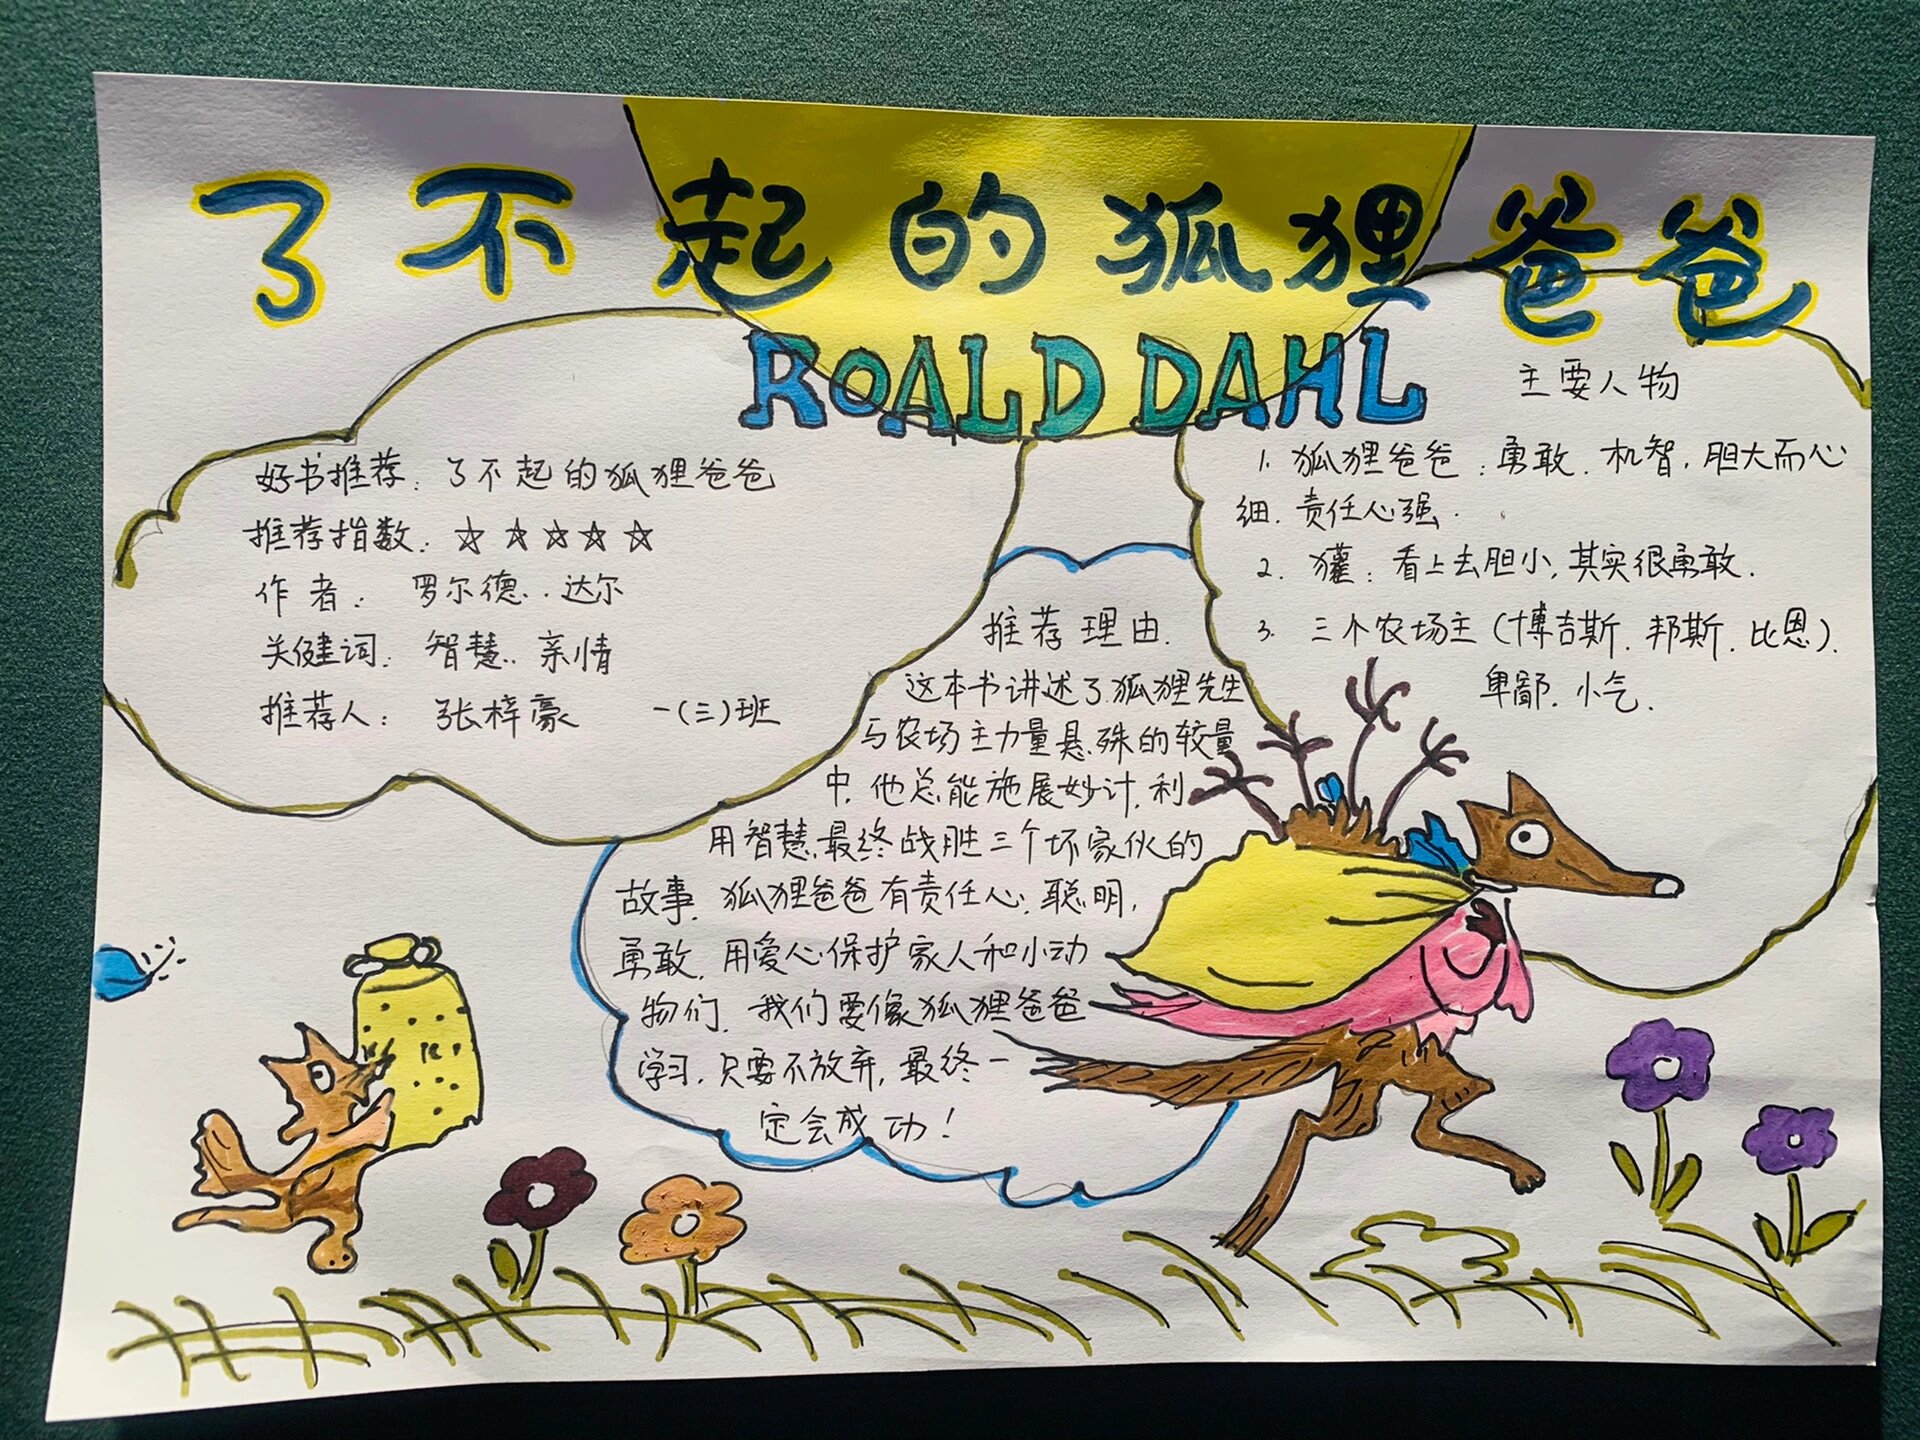 了不起的狐狸爸爸
ROALD DAHL
好书推荐：了不起的狐狸爸爸
推荐指数：☆☆☆☆☆
作者：罗尔德..达尔
关键词：智慧.亲情
推荐人：张梓豪 一(三)班
推荐理由.
这本书讲述了狐狸先生
与农场主力量悬殊的较量
中.他总能施展妙计.利
用智慧.最终战胜三个坏家伙的
故事.狐狸爸爸有责任心.聪明,
勇敢.用爱心保护家人和小动
物们.我们要像狐狸爸爸
学习.只要不放弃,最终一
定会成功！
主要人物
1. 狐狸爸爸：勇敢.机智,胆大而心
细.责任心强.
2. 獾：看上去胆小,其实很勇敢.
3. 三个农场主(博吉斯.邦斯.比恩).
卑鄙.小气.